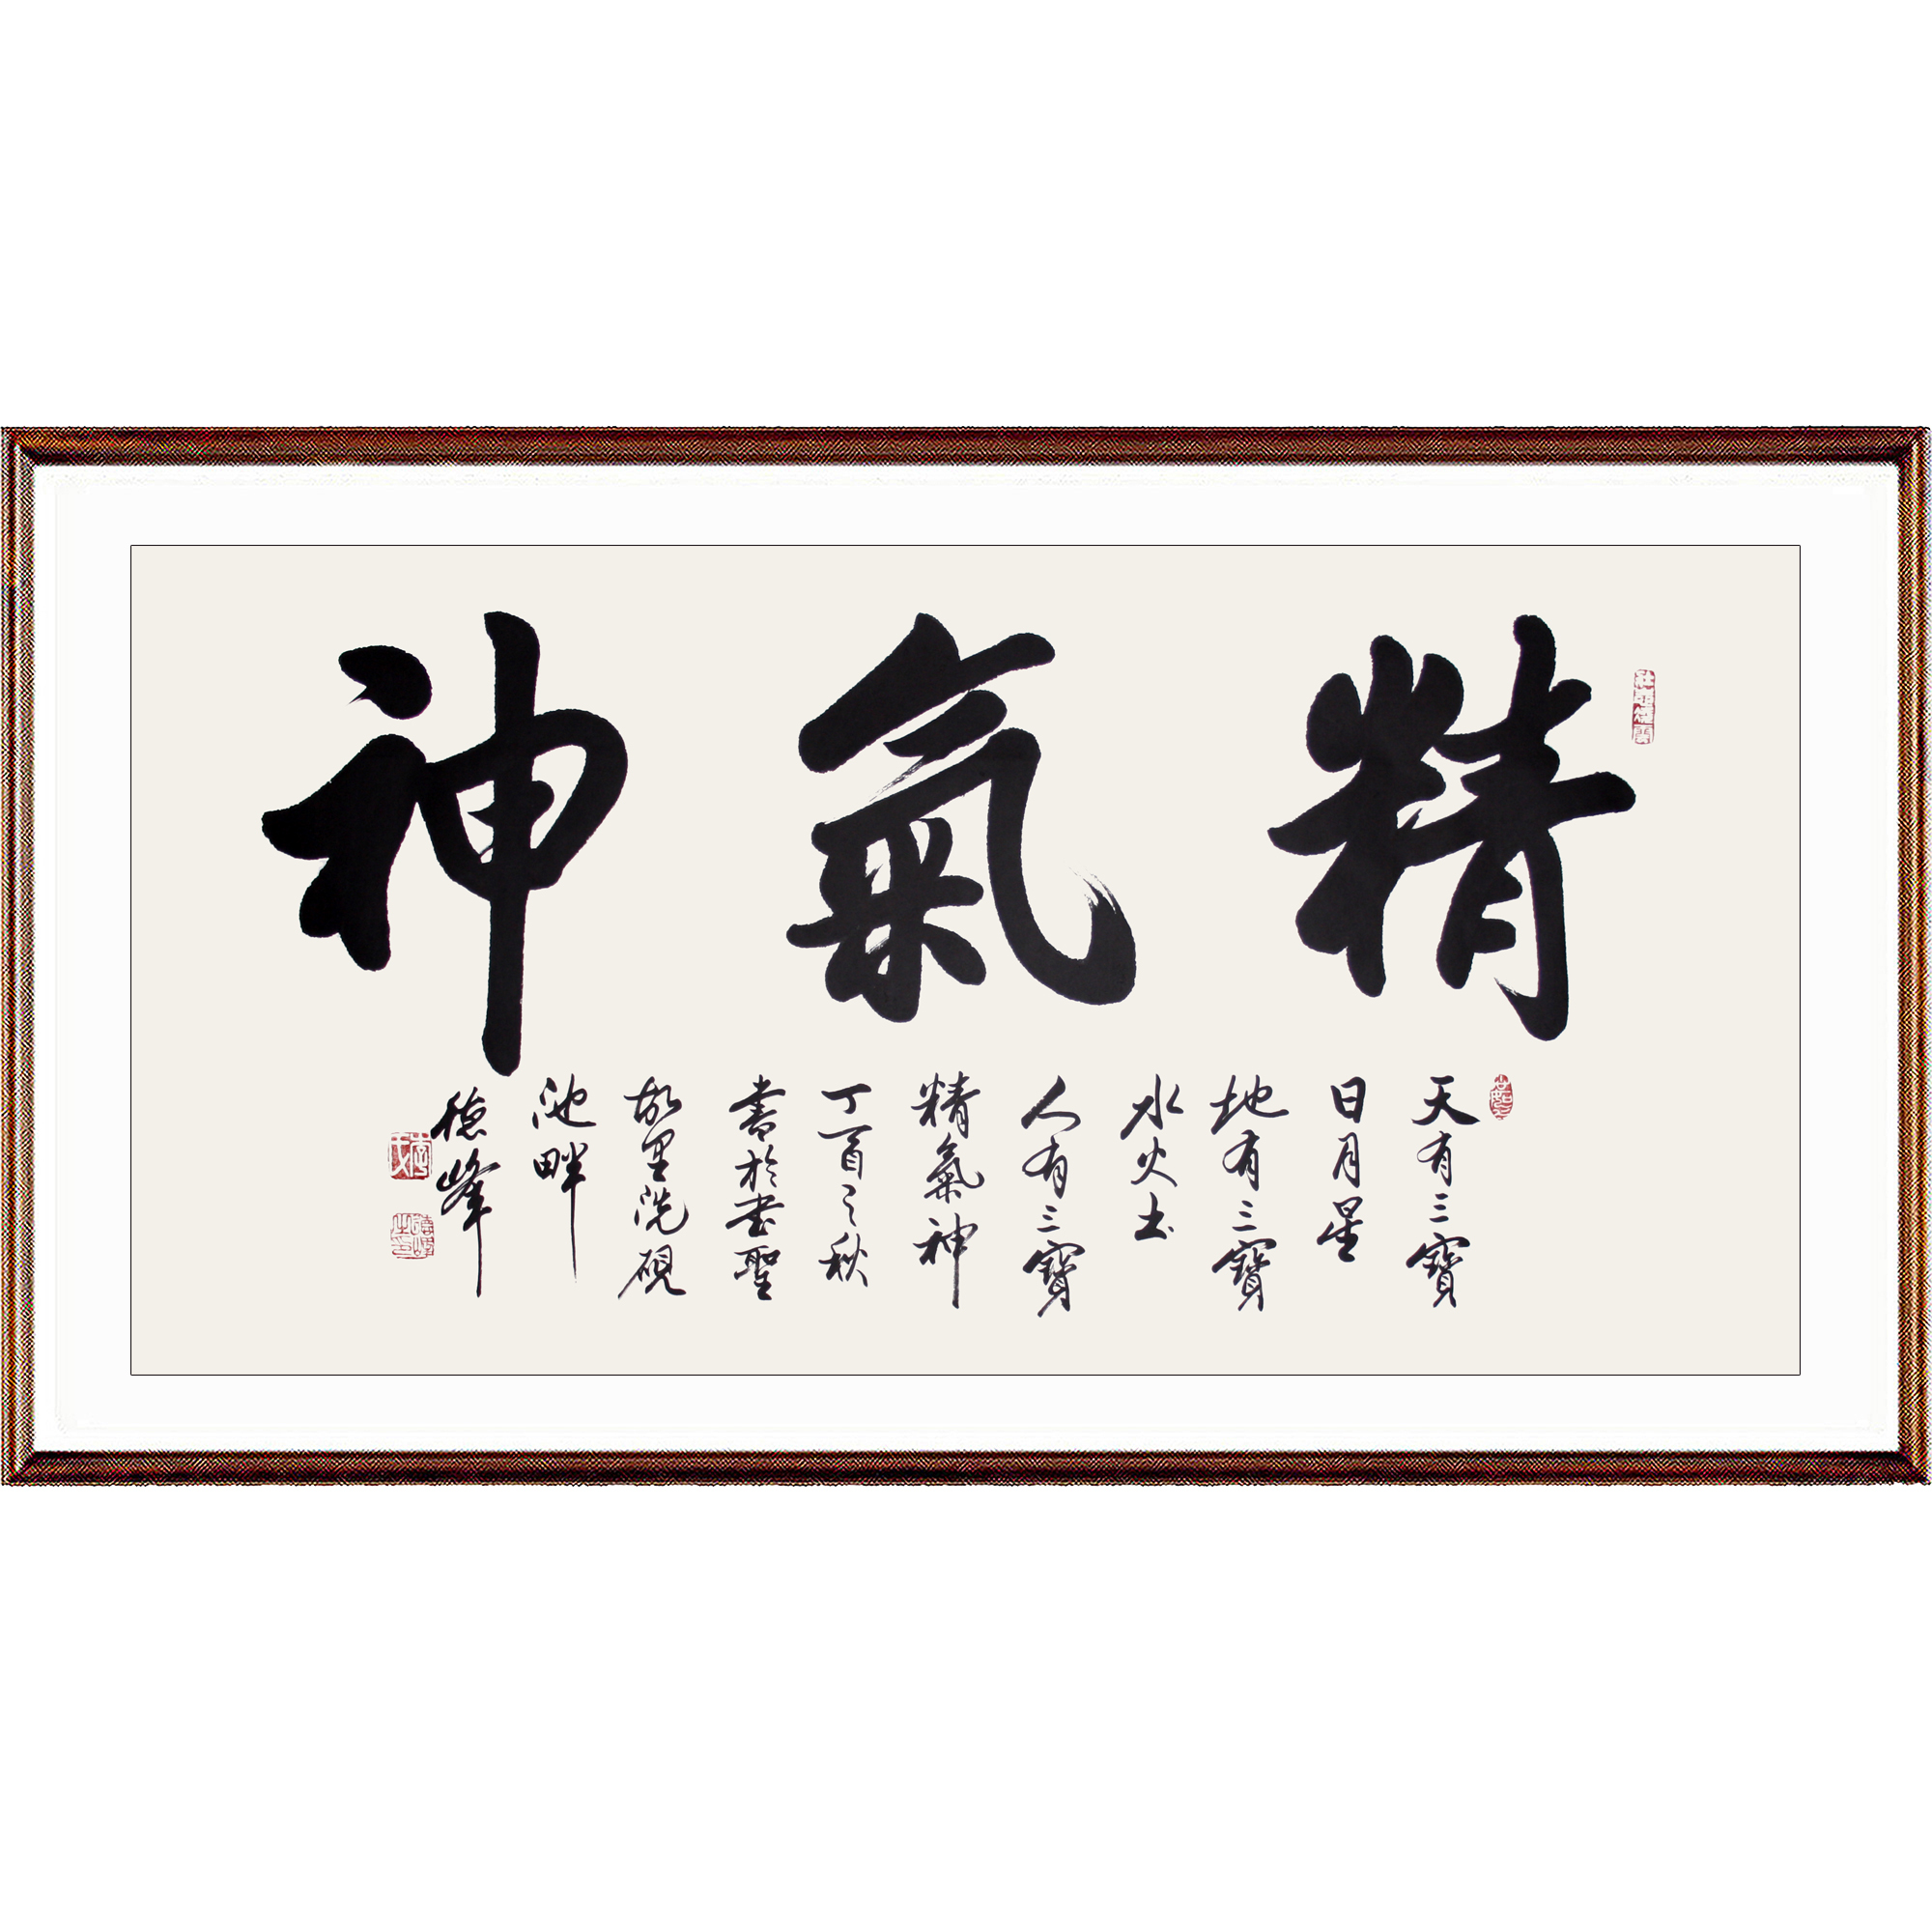 精氣神
天有三寶
日月星
地有三寶
水火土
人有三寶
精氣神
丁酉之秋
書於書聖
故里洗硯
池畔
德峰